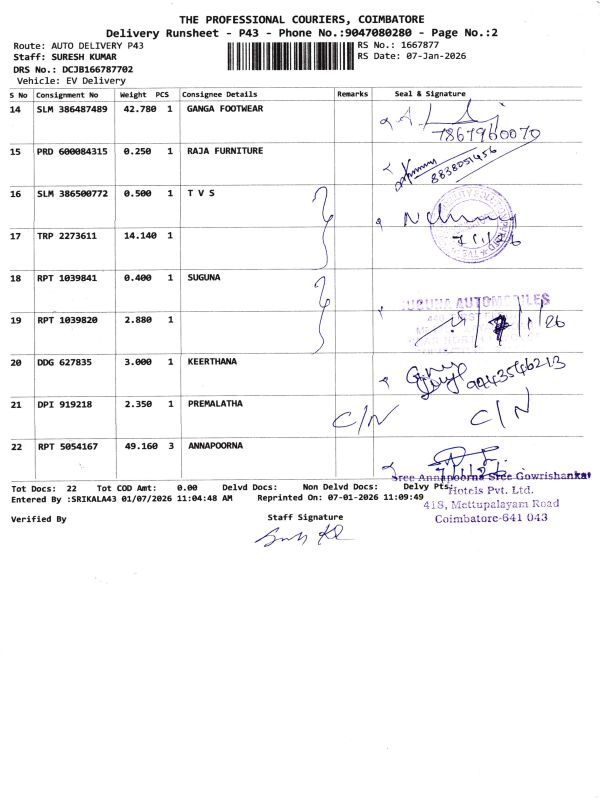 THE PROFESSIONAL COURIERS, COIMBATORE
Delivery Runsheet - P43 - Phone No.:9047080280 - Page No.:2
Route: AUTO DELIVERY P43 RS No.: 1667877
Staff: SURESH KUMAR RS Date: 07-Jan-2026
DRS No.: DCJB166787702
Vehicle: EV Delivery
S No Consignment No Weight PCS Consignee Details Remarks Seal & Signature
14 SLM 386487489 42.780 1 GANGA FOOTWEAR
7867960070
15 PRD 600084315 0.250 1 RAJA FURNITURE
8838051456
16 SLM 386500772 0.500 1 T V S
17 TRP 2273611 14.140 1
7/1/26
18 RPT 1039841 0.400 1 SUGUNA
SUGUNA AUTOMOBILES
19 RPT 1039820 2.880 1
7/1/26
20 DDG 627835 3.000 1 KEERTHANA
9443546213
21 DPI 919218 2.350 1 PREMALATHA C/N C/N
22 RPT 5054167 49.160 3 ANNAPOORNA
7/1/26
Sree Annapoorna Sree Gowrishankar
Hotels Pvt. Ltd.
418, Mettupalayam Road
Coimbatore-641 043
Tot Docs: 22 Tot COD Amt: 0.00 Delvd Docs: Non Delvd Docs: Delvy Pts:
Entered By :SRIKALA43 01/07/2026 11:04:48 AM Reprinted On: 07-01-2026 11:09:49
Verified By Staff Signature